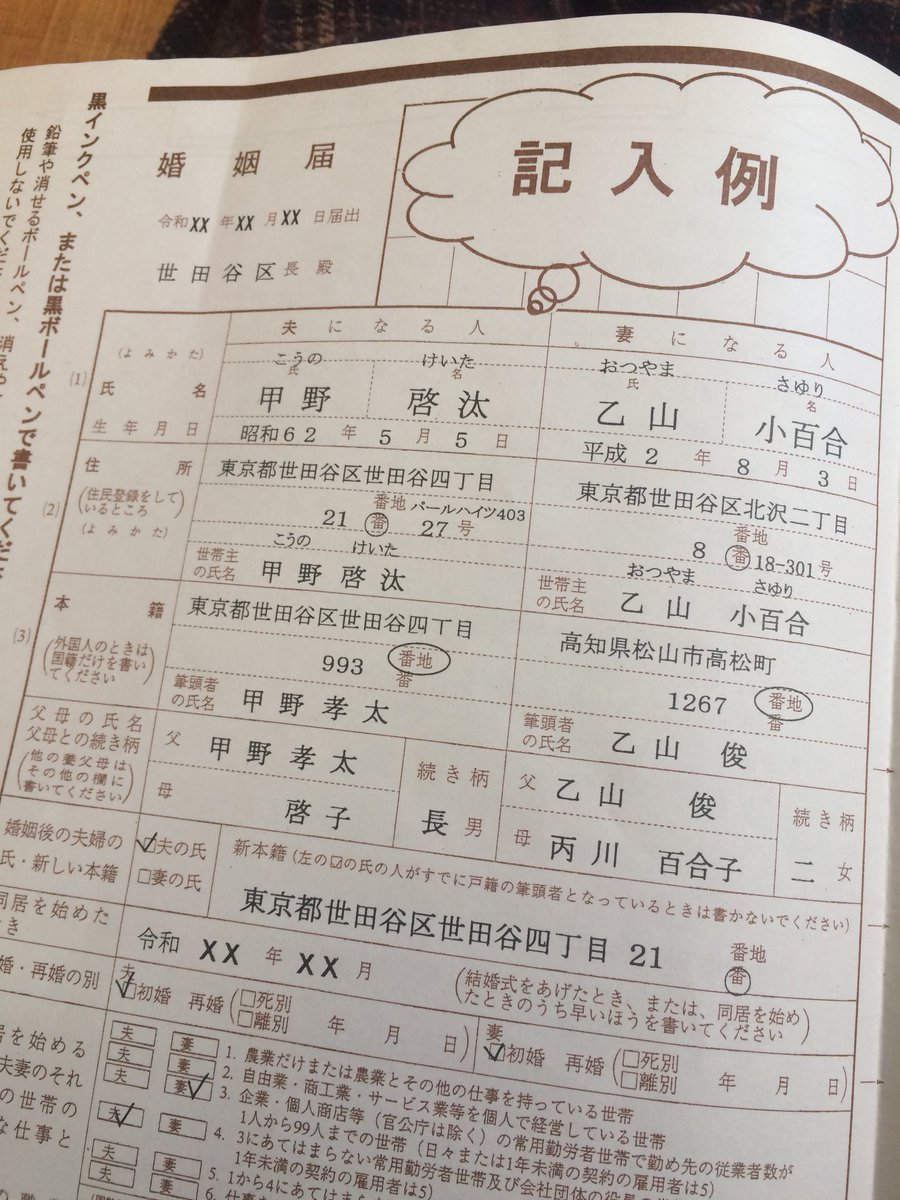 記入例
黒インクペン、または黒ボールペンで書いてくだ
鉛筆や消せるボールペン、消えや
使用しないでくだ
婚姻届
令和XX年XX月XX日届出
世田谷区長殿
夫になる人
妻になる人
(1)
(よみかた)
こうの けいた
おつやま さゆり
氏 名
氏 名
氏名
甲野 啓汰
乙山 小百合
生年月日
昭和62年5月5日
平成2年8月3日
(2)
住所
(住民登録をして
いるところ)
(よみかた)
東京都世田谷区世田谷四丁目
番地 パールハイツ403
21 番 27号
こうの けいた
世帯主
の氏名 甲野啓汰
東京都世田谷区北沢二丁目
番地
8 番 18-301号
おつやま さゆり
世帯主
の氏名 乙山 小百合
(3)
本籍
(外国人のときは
国籍だけを書い
てください)
東京都世田谷区世田谷四丁目
993 番地
番
筆頭者
の氏名 甲野孝太
高知県松山市高松町
1267 番地
番
筆頭者
の氏名 乙山 俊
父母の氏名
父母との続き柄
(他の養父母は
その他の欄に
書いてください)
父 甲野孝太
母 啓子
続き柄
長男
父 乙山 俊
母 丙川 百合子
続き柄
二女
婚姻後の夫婦の
氏・新しい本籍
夫の氏
妻の氏
新本籍(左の☑の氏の人がすでに戸籍の筆頭者となっているときは書かないでください)
東京都世田谷区世田谷四丁目 21 番地
番
同居を始めた
とき
令和 XX 年 XX 月
(結婚式をあげたとき、または、同居を始め
たときのうち早いほうを書いてください)
婚・再婚の別
夫
初婚 再婚(□死別
□離別 年 月 日)
妻
初婚 再婚(□死別
□離別 年 月 日)
居を始める
夫妻のそれ
の世帯の
な仕事と
夫 妻 1. 農業だけまたは農業とその他の仕事を持っている世帯
夫 妻 2. 自由業・商工業・サービス業等を個人で経営している世帯
夫 妻 3. 企業・個人商店等(官公庁は除く)の常用勤労者世帯で勤め先の従業者数が
1人から99人までの世帯(日々または1年未満の契約の雇用者は5)
夫 妻 4. 3にあてはまらない常用勤労者世帯及び会社団体の役員の世
1年未満の契約の雇用者は5)
夫 妻 5. 1から4にあてはま
夫 妻 6. 仕事